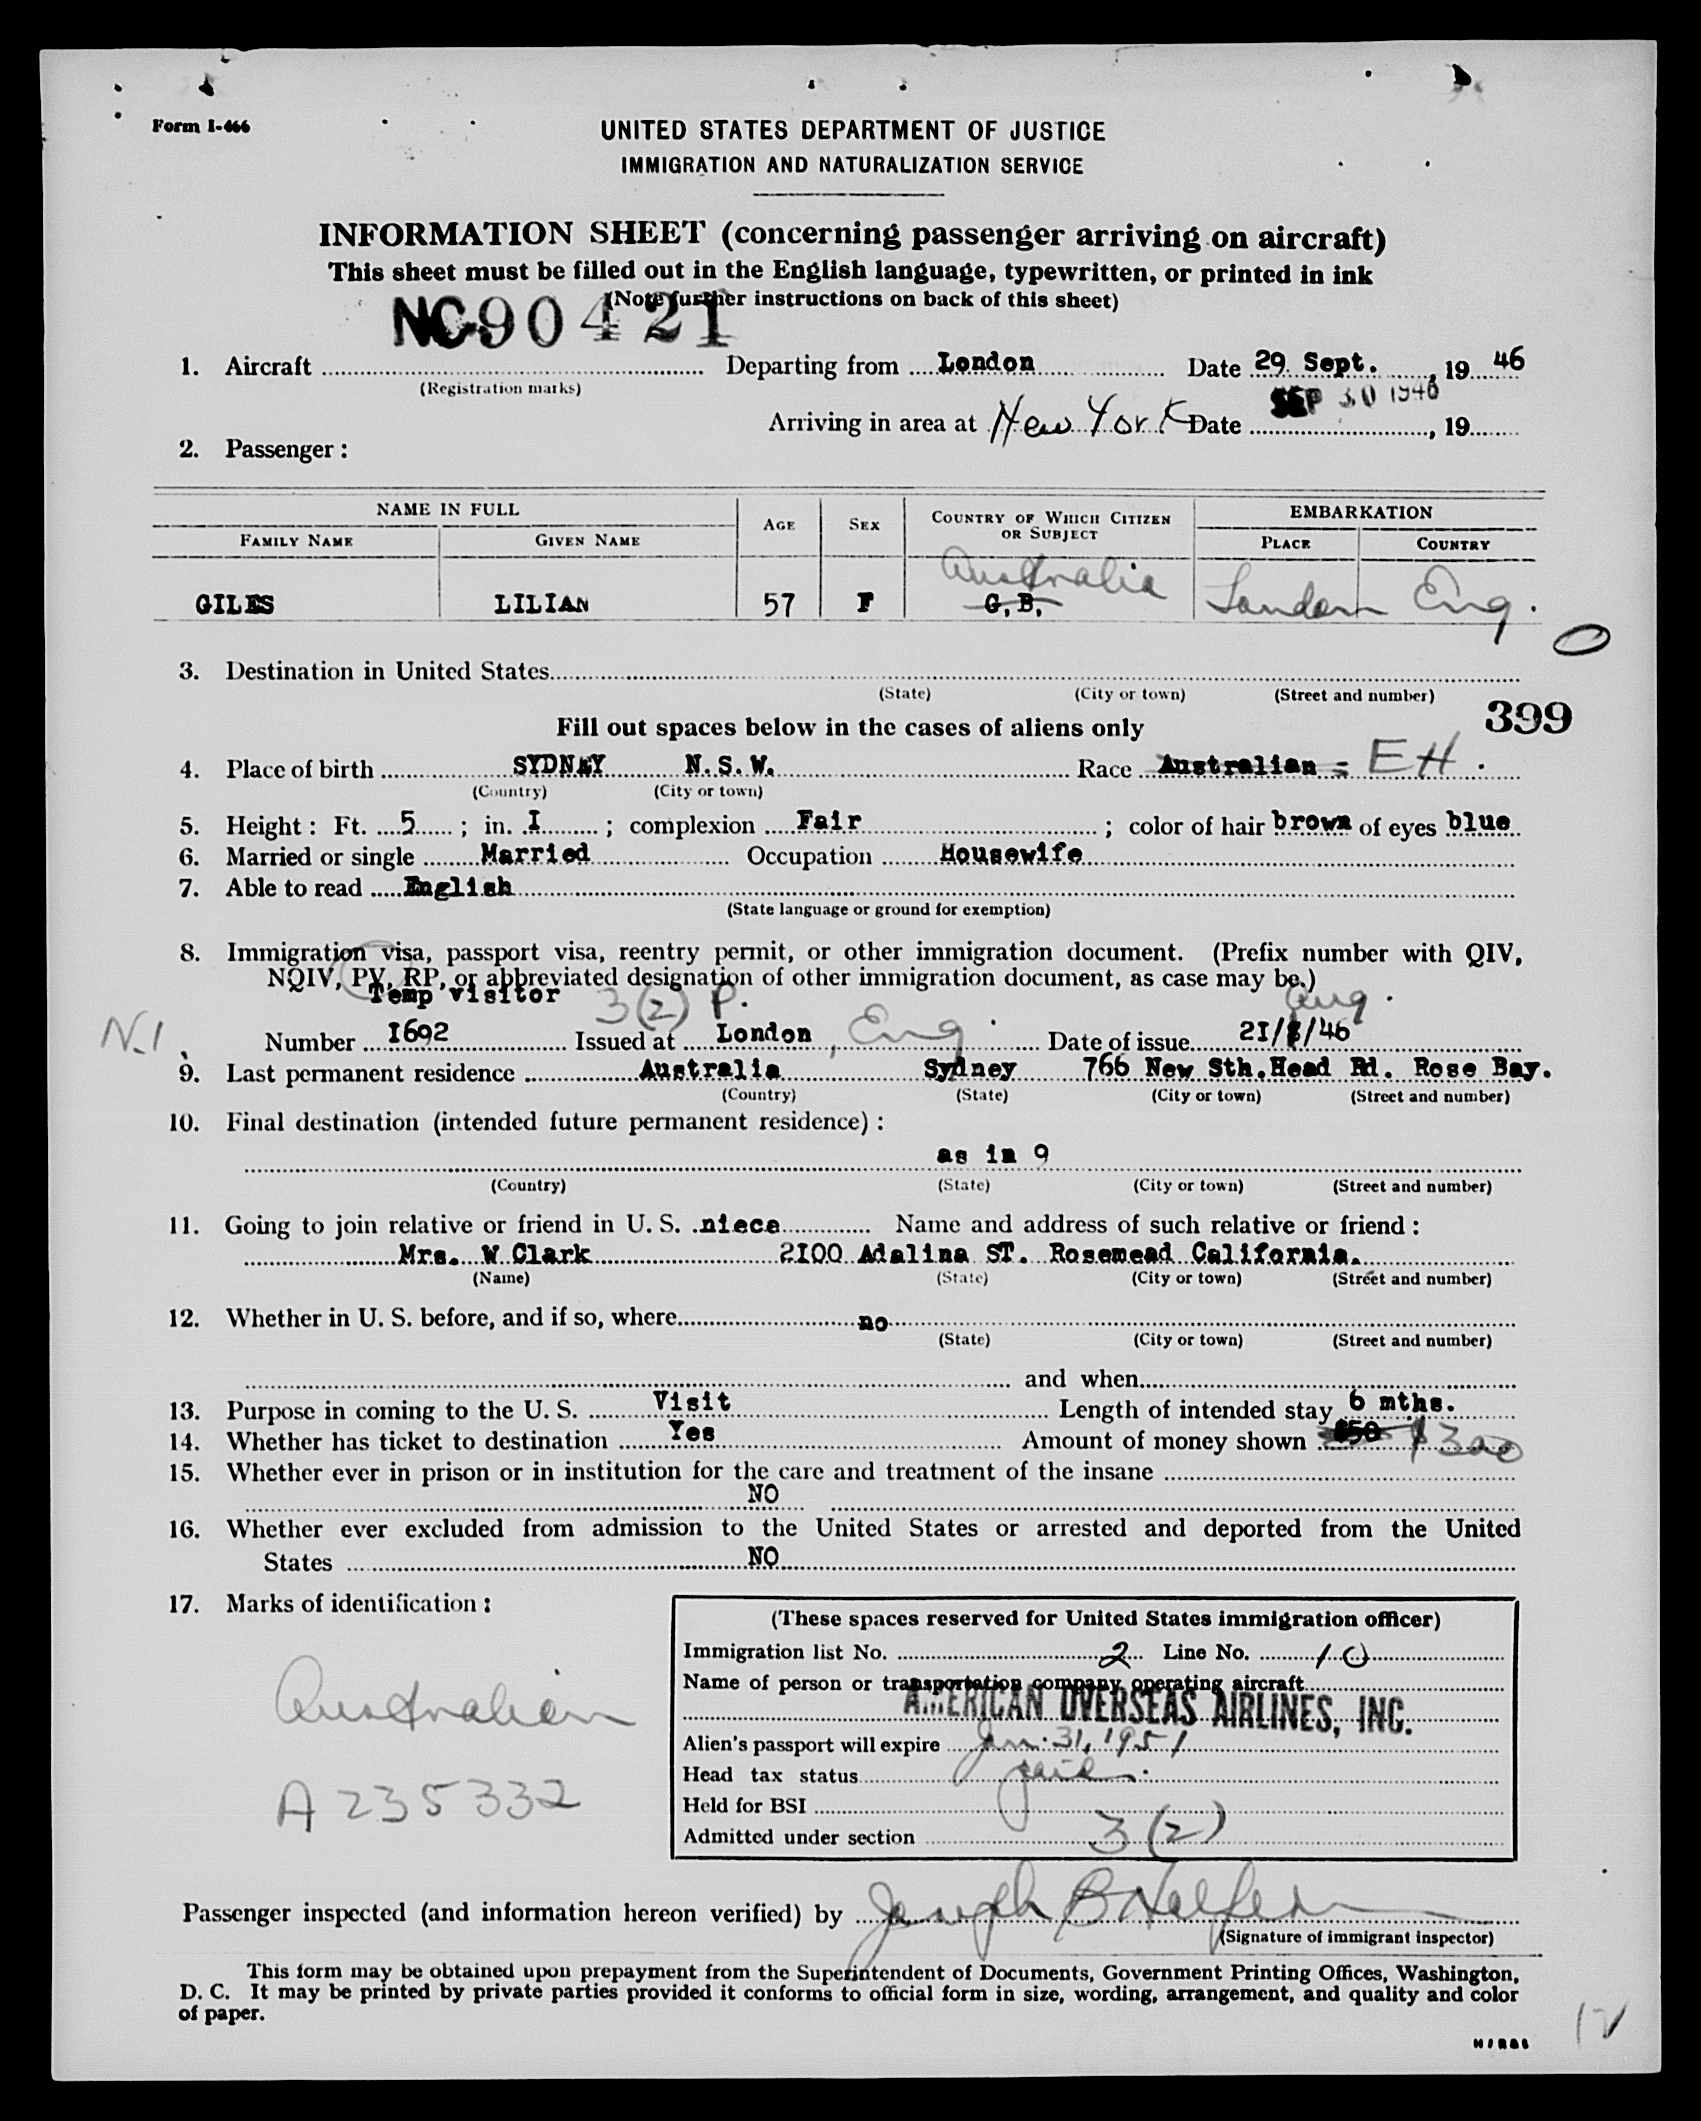 Form I-466
UNITED STATES DEPARTMENT OF JUSTICE
IMMIGRATION AND NATURALIZATION SERVICE
INFORMATION SHEET (concerning passenger arriving on aircraft)
This sheet must be filled out in the English language, typewritten, or printed in ink
(Note further instructions on back of this sheet)
NC90421
1. Aircraft Departing from London Date 29 Sept., 19 46
(Registration marks)
SEP 30 1946
Arriving in area at New York Date , 19
2. Passenger:
NAME IN FULL AGE SEX COUNTRY OF WHICH CITIZEN OR SUBJECT EMBARKATION
FAMILY NAME GIVEN NAME PLACE COUNTRY
Australia
GILES LILIAN 57 F G.B. London Eng.
3. Destination in United States
(State) (City or town) (Street and number)
399
Fill out spaces below in the cases of aliens only
4. Place of birth SYDNEY N.S.W. Race Australian - EH.
(Country) (City or town)
5. Height: Ft. 5; in. I; complexion Fair; color of hair brown of eyes blue
6. Married or single Married Occupation Housewife
7. Able to read English
(State language or ground for exemption)
8. Immigration visa, passport visa, reentry permit, or other immigration document. (Prefix number with QIV,
NQIV, PV, RP, or abbreviated designation of other immigration document, as case may be.)
Temp visitor 3(2) P. Aug.
N.I Number I692 Issued at London, Eng Date of issue 2I/8/46
9. Last permanent residence Australia Sydney 766 New Sth.Head Rd. Rose Bay.
(Country) (State) (City or town) (Street and number)
10. Final destination (intended future permanent residence):
as in 9
(Country) (State) (City or town) (Street and number)
11. Going to join relative or friend in U. S. niece Name and address of such relative or friend:
Mrs. W Clark 2I00 Adalina ST. Rosemead California.
(Name) (State) (City or town) (Street and number)
12. Whether in U. S. before, and if so, where no
(State) (City or town) (Street and number)
and when
13. Purpose in coming to the U. S. Visit Length of intended stay 6 mths.
14. Whether has ticket to destination Yes Amount of money shown $50 $300
15. Whether ever in prison or in institution for the care and treatment of the insane
NO
16. Whether ever excluded from admission to the United States or arrested and deported from the United
States NO
17. Marks of identification:
Australian
A 235332
(These spaces reserved for United States immigration officer)
Immigration list No. 2 Line No. 10
Name of person or transportation company operating aircraft
AMERICAN OVERSEAS AIRLINES, INC.
Alien's passport will expire Jan. 31, 1951
Head tax status paid.
Held for BSI
Admitted under section 3(2)
Passenger inspected (and information hereon verified) by Joseph B Halfern
(Signature of immigrant inspector)
This form may be obtained upon prepayment from the Superintendent of Documents, Government Printing Offices, Washington,
D. C. It may be printed by private parties provided it conforms to official form in size, wording, arrangement, and quality and color
of paper.